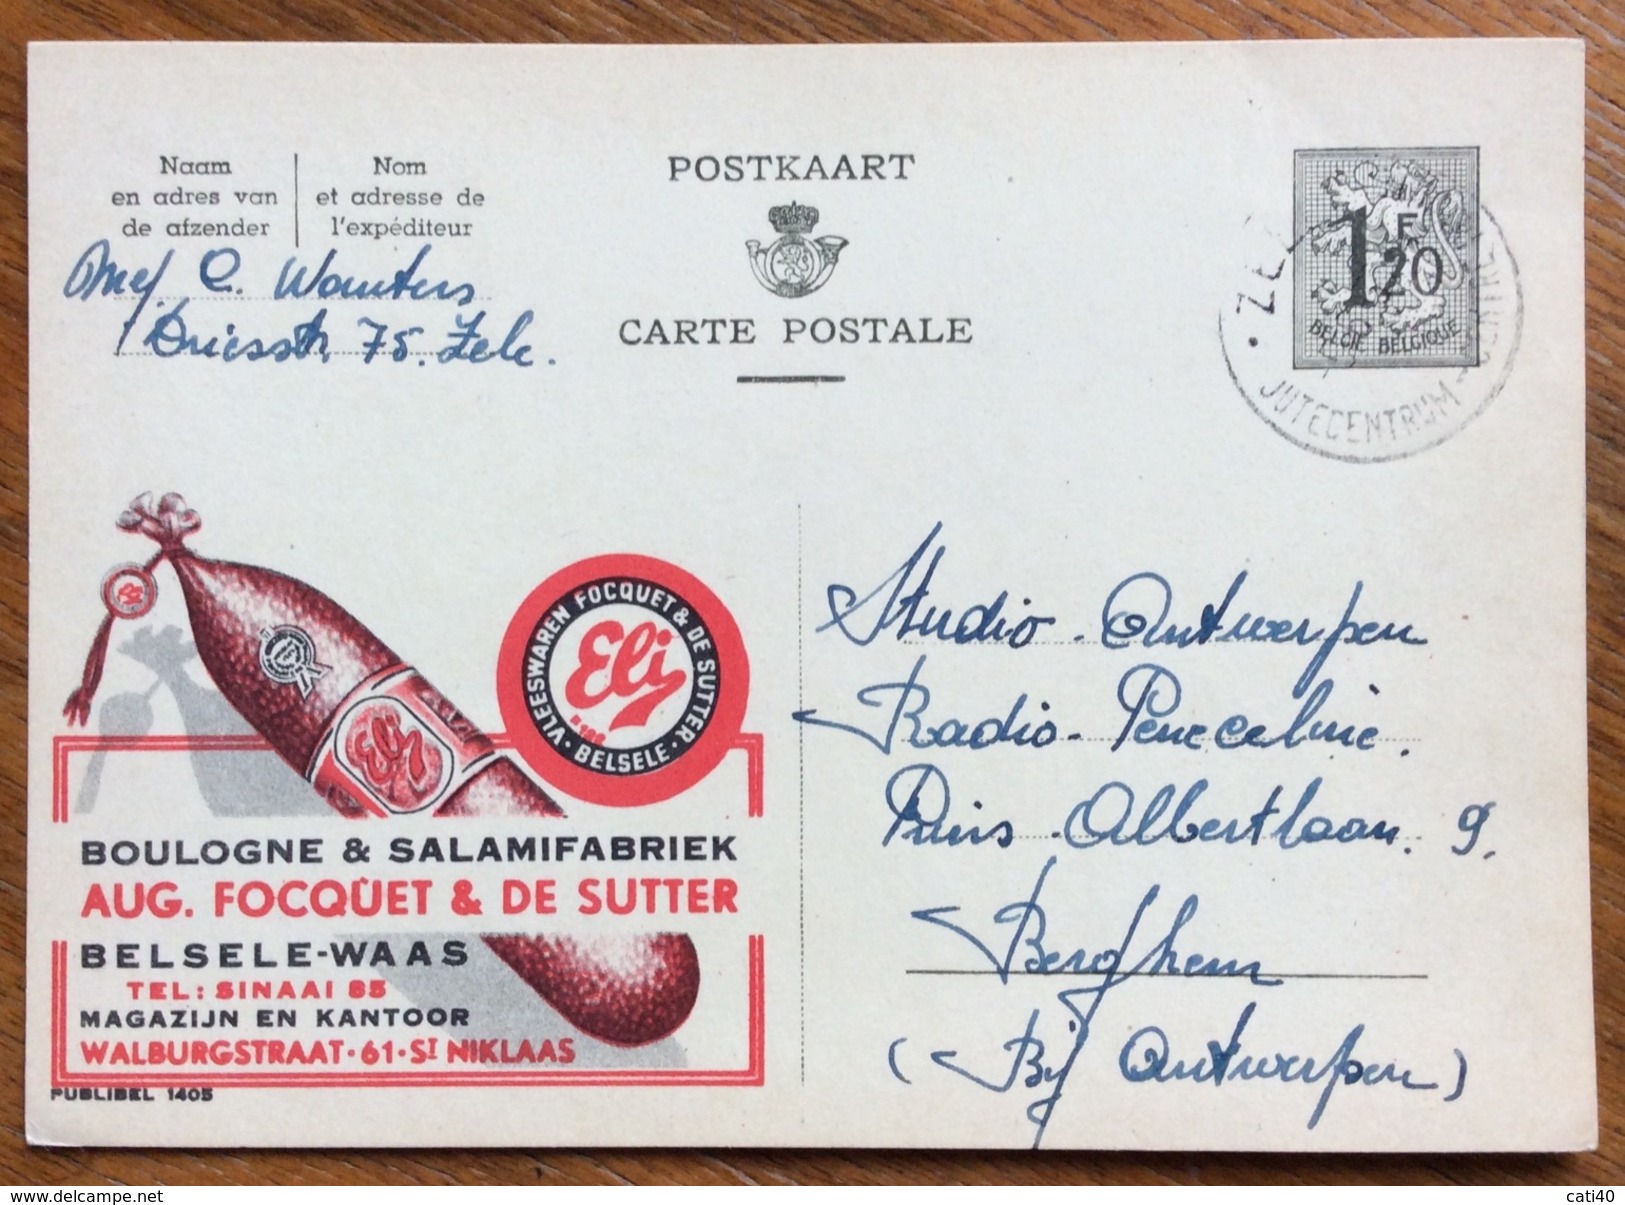 Naam
en adres van
de afzender
Nom
et adresse de
l'expéditeur
Mej. C. Wauters
Driesstr. 75. Zele.
POSTKAART
CARTE POSTALE
1F20
BELGIE BELGIQUE
JUTECENTRUM
VLEESWAREN FOCQUET & DE SUTTER
Eli
BELSELE
Eli
BOULOGNE & SALAMIFABRIEK
AUG. FOCQUET & DE SUTTER
BELSELE-WAAS
TEL: SINAAI 85
MAGAZIJN EN KANTOOR
WALBURGSTRAAT·61·ST NIKLAAS
PUBLIBEL 1405
Studio Antwerpen
Radio
Prins Albertlaan. 9.
Berghem
(Bij Antwerpen)
cati40
www.delcampe.net